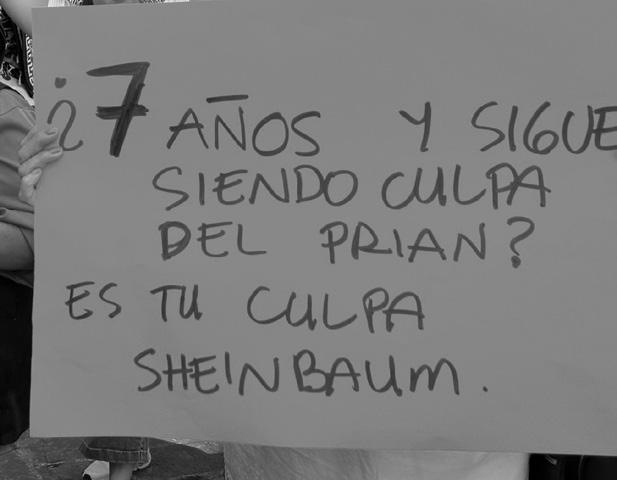 ¿7 AÑOS Y SIGUE
SIENDO CULPA
DEL PRIAN?
ES TU CULPA
SHEINBAUM.